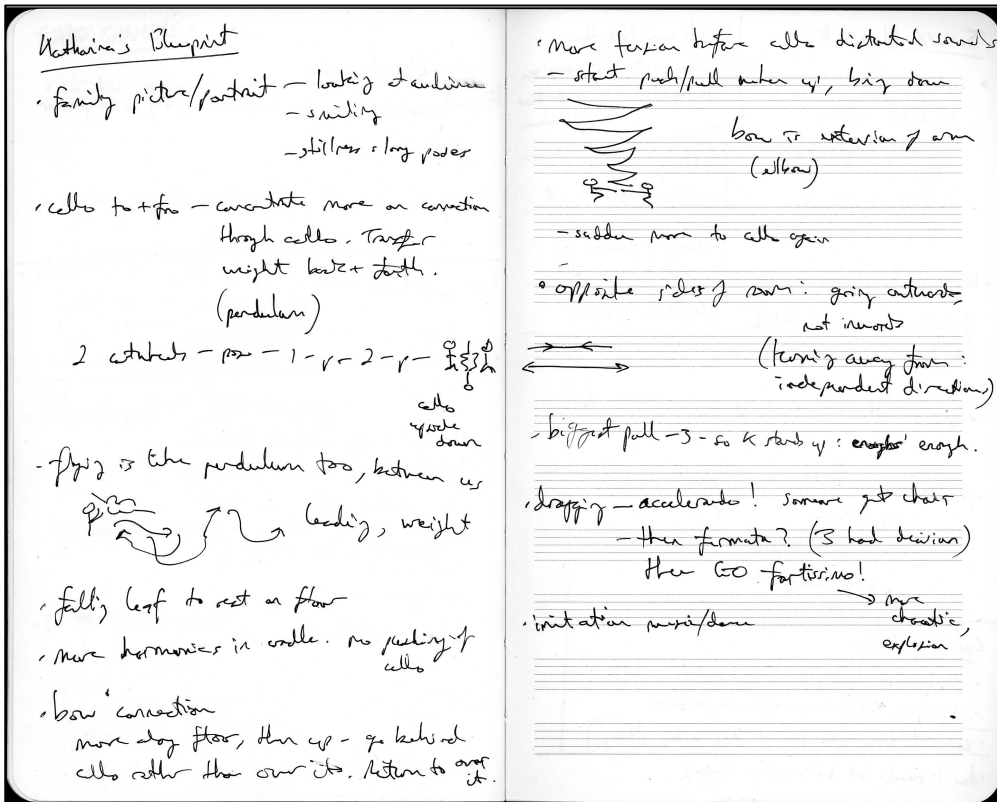 Katharina's Blueprint
· family picture/portrait — looking at audience
— smiling
— stillness & long poses
· cello to + fro — concentrate more on connection
through cello. Transfer
weight back + forth.
(pendulum)
2 — pose — 1 - p - 2 - p -
cello
upside
down
· flying is like pendulum too, between us
leading, weight
· falling leaf to rest on floor
· more harmonics in cradle. no pushing of
cello
· bow connection
more along floor, then up - go behind
cello rather than over it. Return to over
it.
· More tension before cello distorted sounds
— start push/pull up, big down
bow is extension of arm
(elbow)
— sudden move to cello again
· opposite sides of room: going outwards,
not inwards
(turning away from:
independent directions)
· biggest pull — 3 - so K stands up: enough.
· dragging — accelerando! someone get chair
— then fermata? (3 had decision)
then GO fortissimo!
→ more
chaotic,
explosion
· imitation music/dance